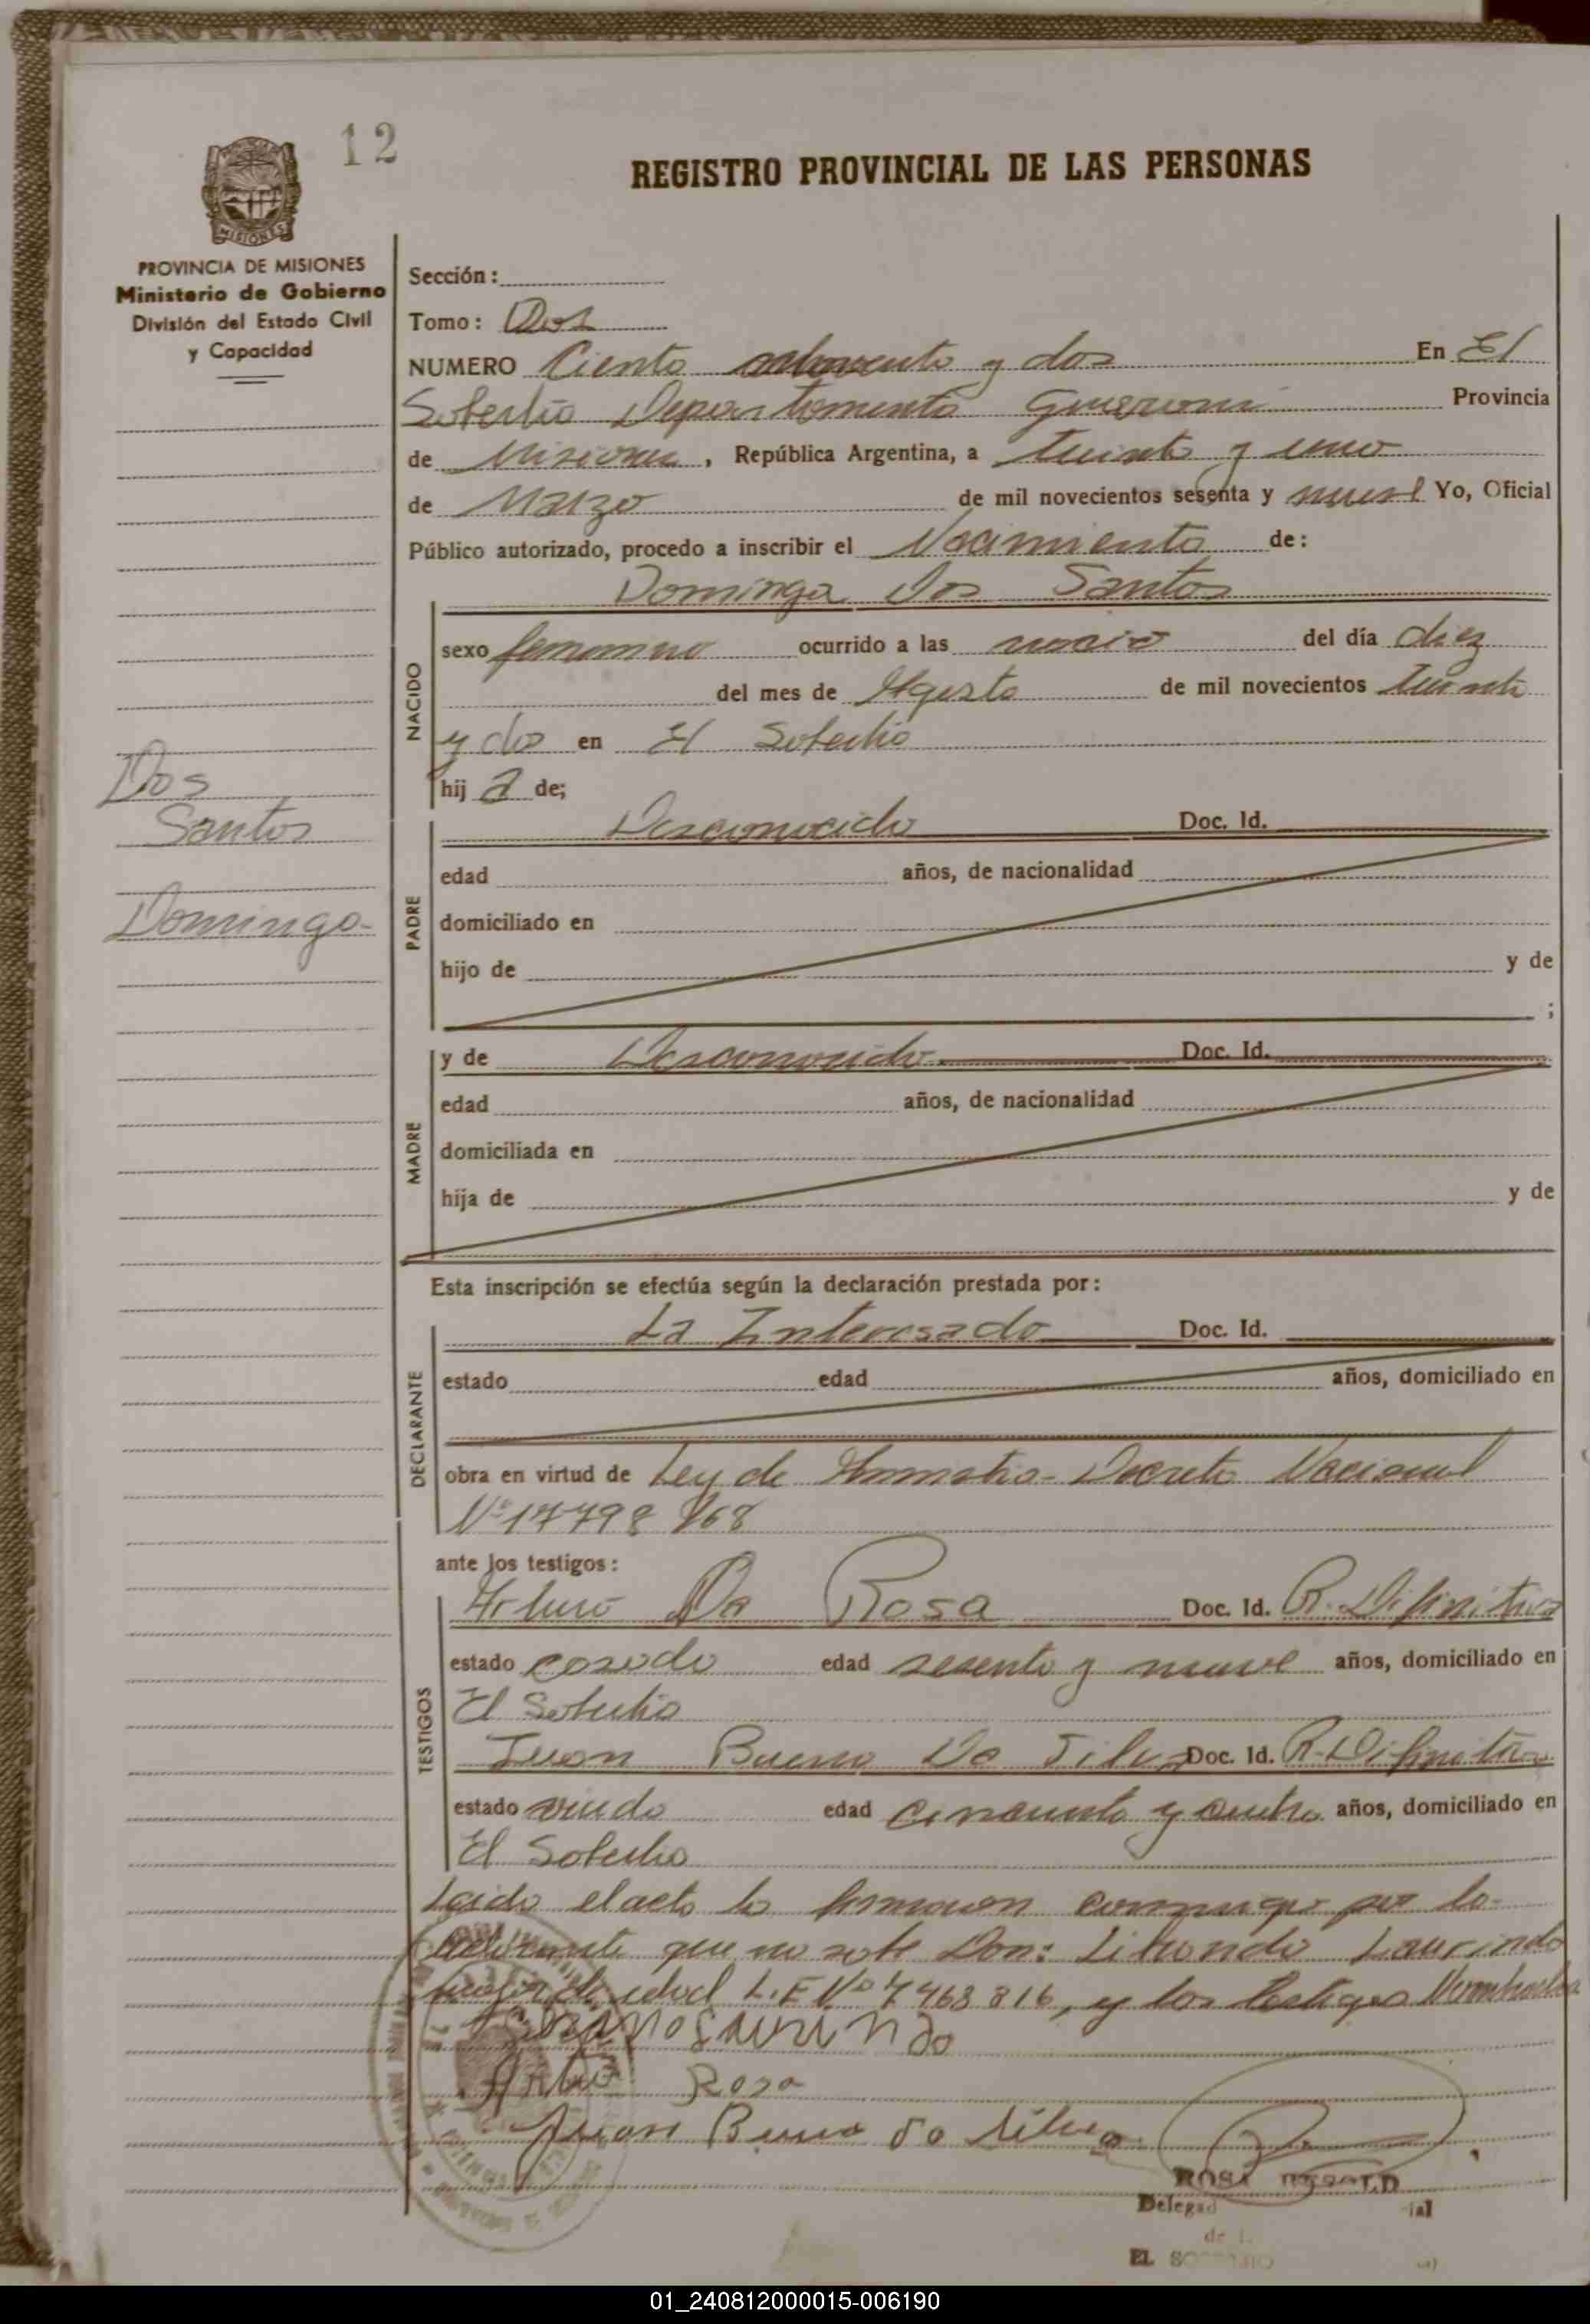 12
REGISTRO PROVINCIAL DE LAS PERSONAS
MISIONES
PROVINCIA DE MISIONES
Ministerio de Gobierno
División del Estado Civil
y Capacidad
Sección:
Tomo: Dos
NUMERO Ciento y dos En El
Soberbio Departamento Guaraní Provincia
de Misiones, República Argentina, a treinta y uno
de Marzo de mil novecientos sesenta y nueve Yo, Oficial
Público autorizado, procedo a inscribir el Nacimiento de:
Dominga Dos Santos
NACIDO
sexo femenino ocurrido a las del día diez
del mes de Agosto de mil novecientos treinta
y dos en El Soberbio
hija de;
Dos
Santos
Dominga-
PADRE
Desconocido Doc. Id.
edad años, de nacionalidad
domiciliado en
hijo de y de
;
MADRE
y de Desconocida Doc. Id.
edad años, de nacionalidad
domiciliada en
hija de y de
Esta inscripción se efectúa según la declaración prestada por:
DECLARANTE
La Interesada Doc. Id.
estado edad años, domiciliado en
obra en virtud de Ley de Amnistia- Decreto Nacional
Nº 17798/68
ante los testigos:
TESTIGOS
Arturo Da Rosa Doc. Id. R. Difinitiva
estado casado edad sesenta y nueve años, domiciliado en
El Soberbio
Juan Bueno Da Silva Doc. Id. R. Difinitiva
estado viudo edad cincuenta y cuatro años, domiciliado en
El Soberbio
Leido el acto la firmaron conmigo por la
declarante que no sabe Don: Laurindo
mayor de edad L.E Nº 7468816, y los testigos
Laurindo
Arturo Rosa
Juan Bueno da Silva
ROSA
EL SOBERBIO
01_240812000015-006190